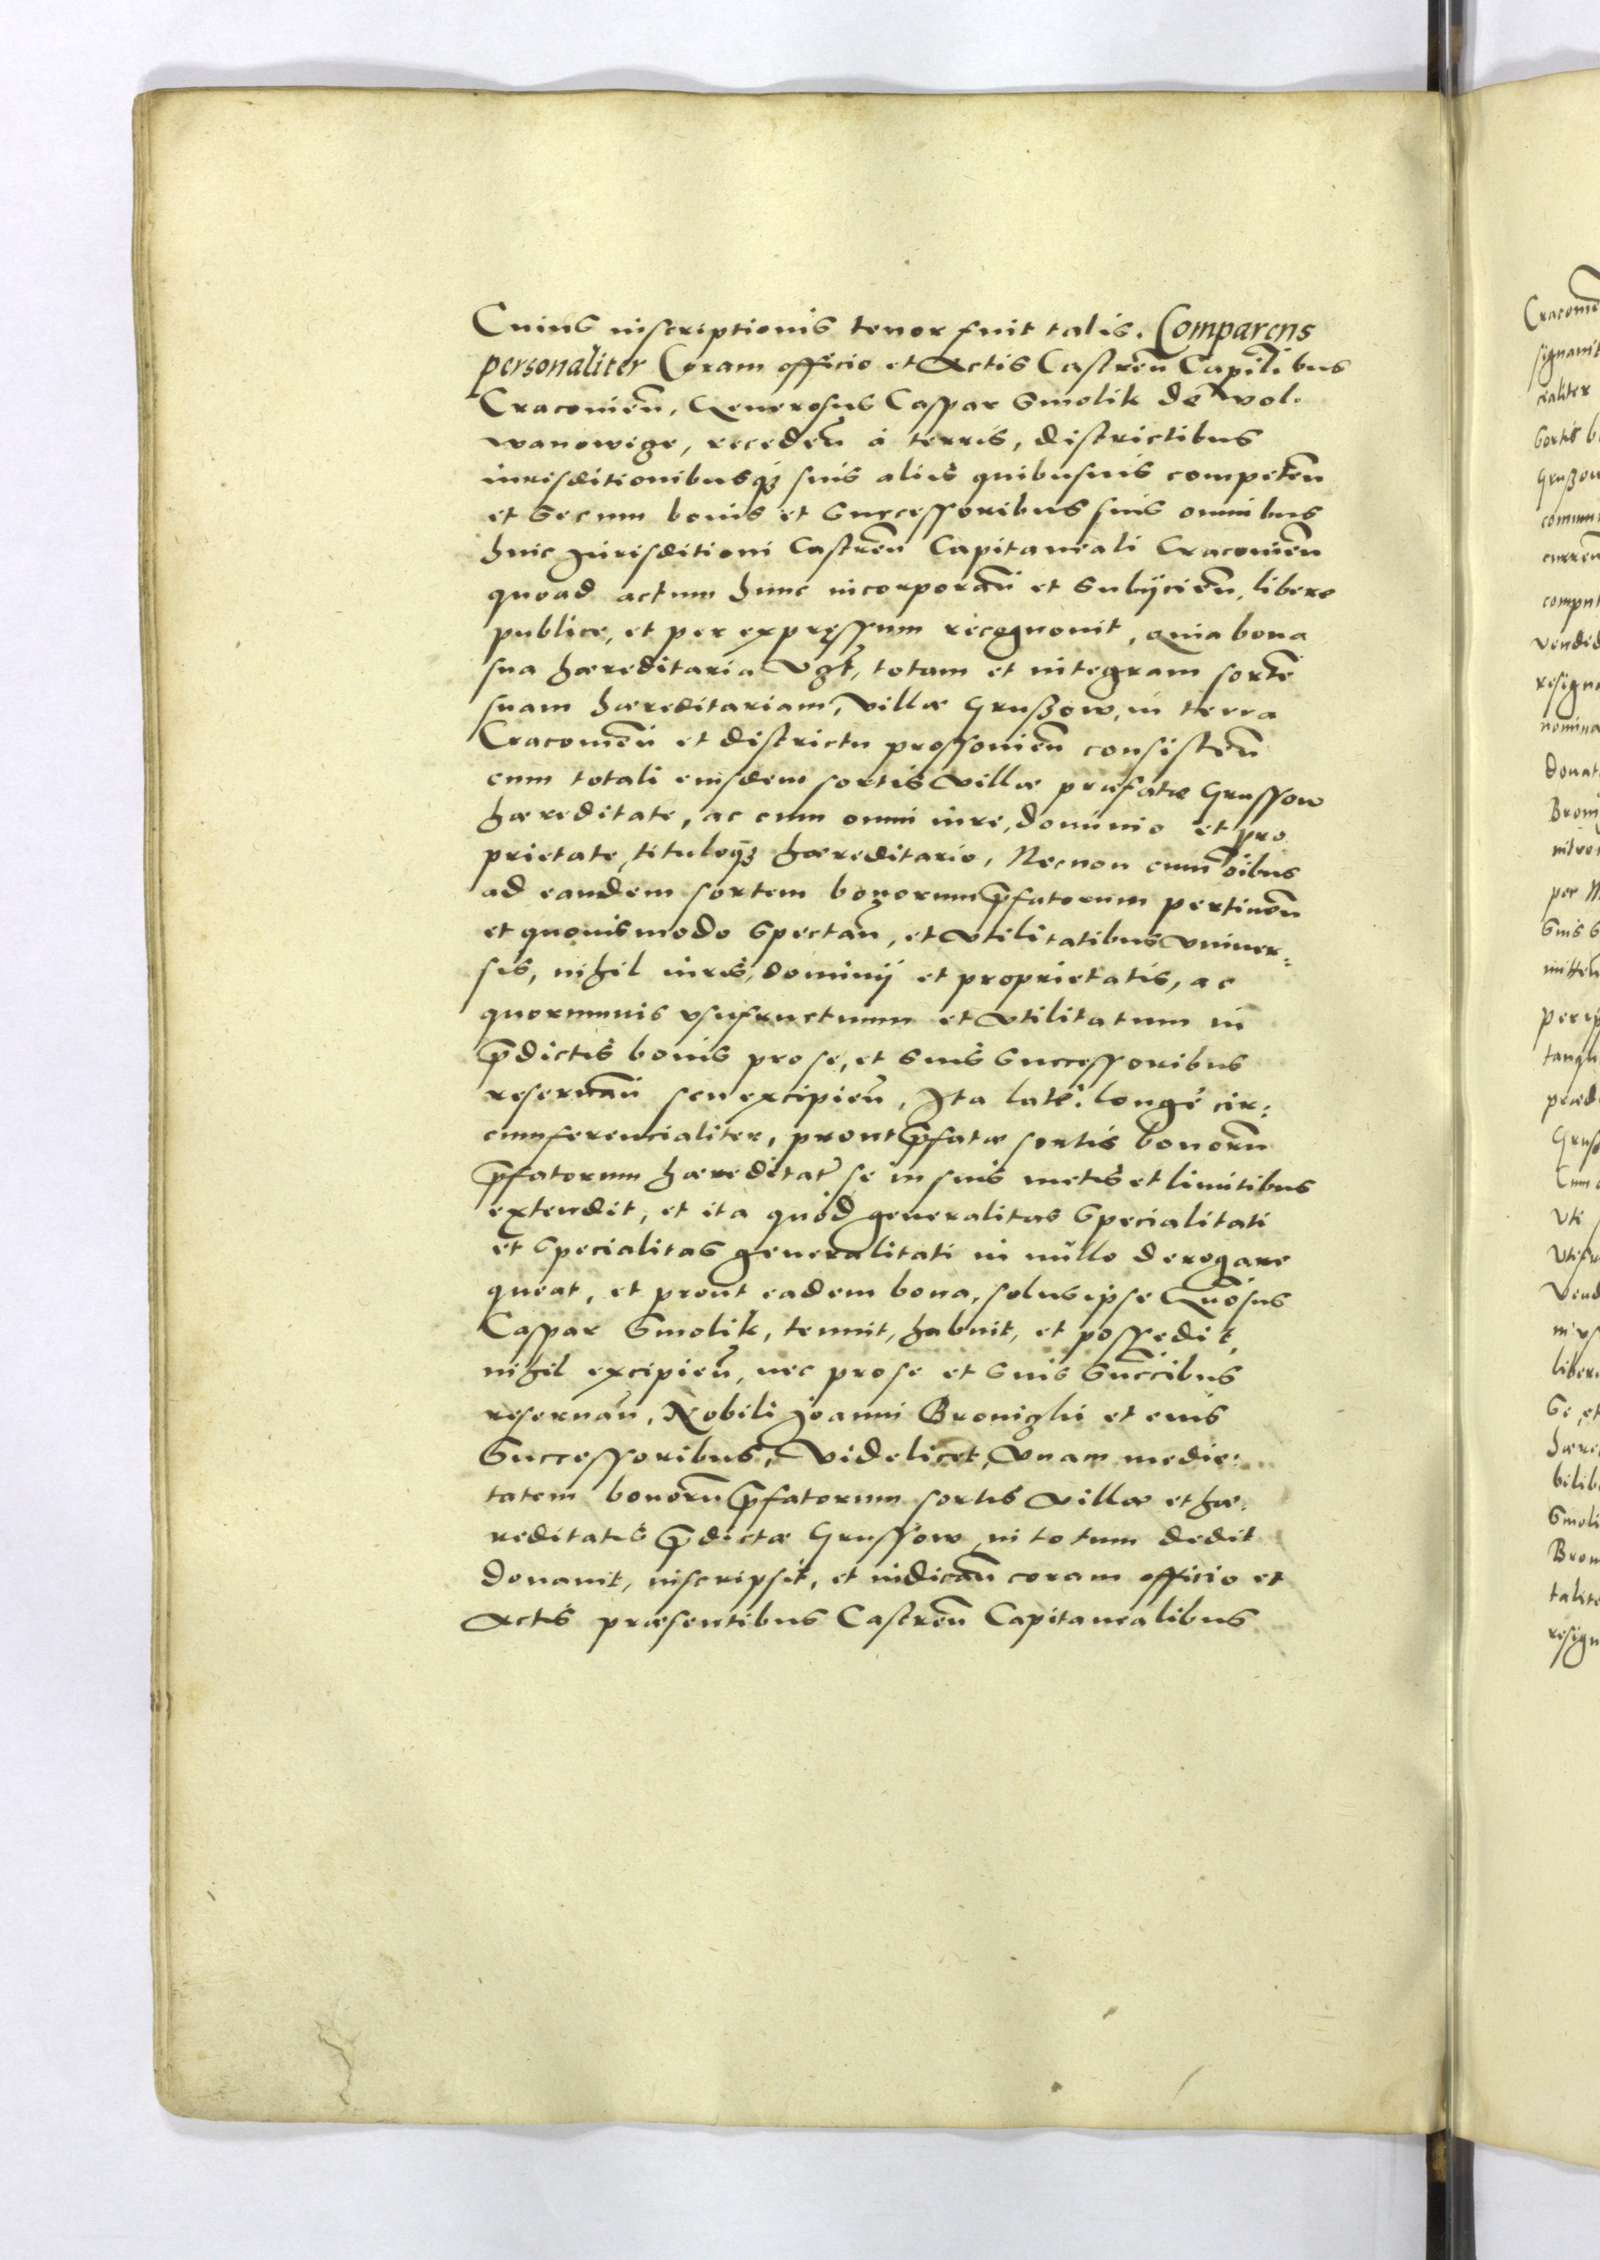 Cuius inscriptionis tenor fuit talis. Comparens
personaliter Coram officio et Actis Castreñ Capiñlibus
Cracouieñ, Generosus Caspar Smolik de Wol.
wanowige, recedeñ à terris, districtibus
iurisditionibusq3 suis alijs quibusuis competeñ
et secum bonis et Successoribus suis omnibus
huic Jurisditioni Castreñ Capitaneali Cracouieñ
quoad actum hunc incorporañ et Subijcieñ, libere
publice, et per expressum recognouit, quia bona
sua hæreditaria vgt, totam et integram sorte͠
suam hæreditariam, villæ Grußow, in terra
Cracouieñ et districtu prossouieñ consisteñ
cum totali eiusdem sortis villæ præfatæ Grussow
hæreditate, ac cum omni iure, dominio et pro
prietate, tituloq3 hæreditario, Necnon cum oi͠bus
ad eandem sortem bonorum p͠fatorum pertineñ
et quouismodo Spectañ, et vtilitatibus vniuer:
sis, nihil iuris, dominij et proprietatis, ac
quorumuis vsufructuum et vtilitatum in
p͠dictis bonis pro se, et suis Successoribus
reseruañ seu excipieñ, Ita latè. longè cir:
cumferencialiter, prout p͠fatæ sortis bonoru͠
p͠fatorum hæreditat' se in suis metis et limitibus
extendit, et ita quòd generalitas Specialitati
et Specialitas generalitati in nullo derogare
queat, et prout eadem bona, solus ipse Gn͠osus
Caspar Smolik, tenuit, habuit, et possedit,
nihil excipieñ, nec pro se et suis Succ͠ibus
reseruañ, Nobili Joanni Bronighi et eius
Successoribus, Videlicet, Vnam medie:
tatem bonoru͠ p͠fatorum sortis villæ et hæ:
reditatis p͠dictæ Grussow in totum dedit
donauit, inscripsit, et iudicañ coram officio et
Actis præsentibus Castreñ Capitanealibus